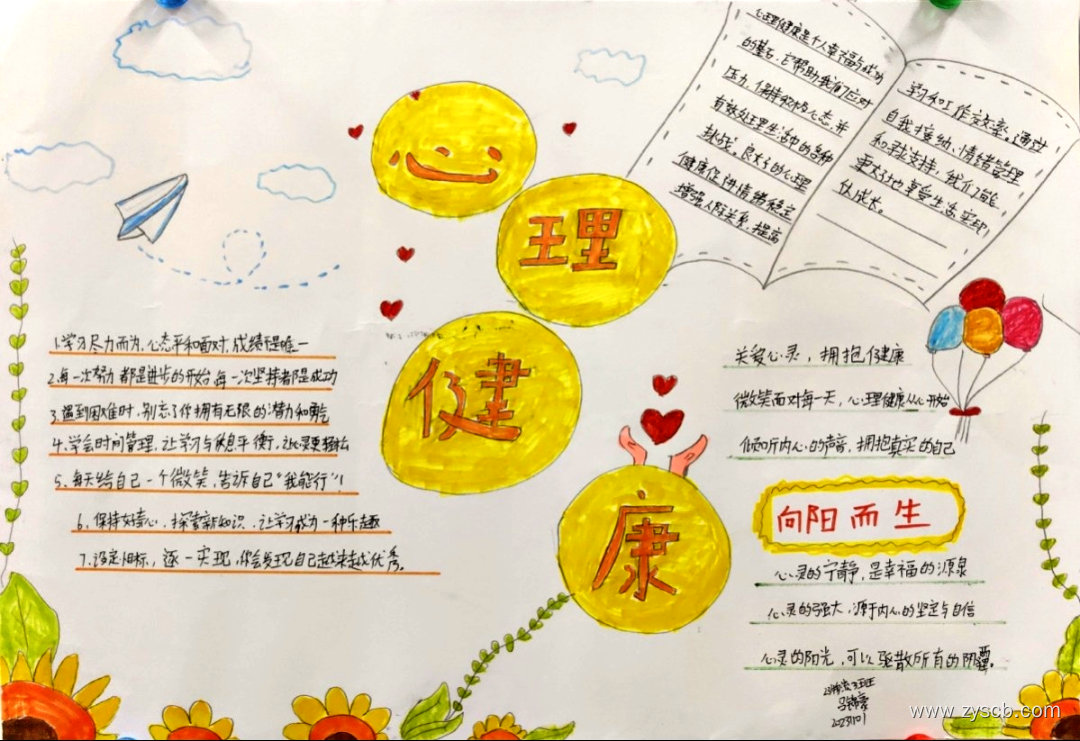 心
理
健
康
心理健康是个人幸福与成功
的基石，它帮助我们应对
压力，保持积极心态，并
有效处理生活中的各种
挑战。良好的心理
健康促进情绪稳定
增强人际关系，提高
学习和工作效率。通过
自我接纳、情绪管理
和寻求支持，我们能
更好地享受生活，实现
1.学习尽力而为，心态平和面对，成绩不是唯一
2.每一次努力都是进步的开始 每一次坚持都是成功
3.遇到困难时，别忘了你拥有无限的潜力和勇气
4.学会时间管理，让学习与休息平衡，让心灵更轻松
5、每天给自己一个微笑，告诉自己"我能行"！
6、保持好奇心，探索新知识，让学习成为一种乐趣
7.设定目标，逐一实现，你会发现自己越来越优秀。
关爱心灵，拥抱健康
微笑面对每一天，心理健康从心开始
倾听内心的声音，拥抱真实的自己
向阳而生
心灵的宁静，是幸福的源泉
心灵的强大，源于内心的坚定与自信
心灵的阳光，可以驱散所有的阴霾。
20231101
www.zyscb.com